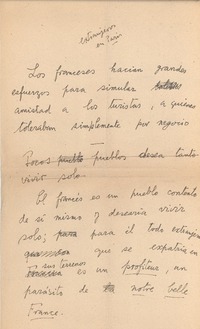 extranjeros
en París
Los franceses hacían grandes
esfuerzos para simular
amistad a los turistas, a quienes
toleraban simplemente por negocio
Pocos pueblo pueblos desea tanto
vivir solo
El francés es un pueblo contento
de sí mismo y desearía vivir
solo; para él todo extranjero
que se expatria en
sus terrenos es un profiteur, un
parásito de notre belle
France.